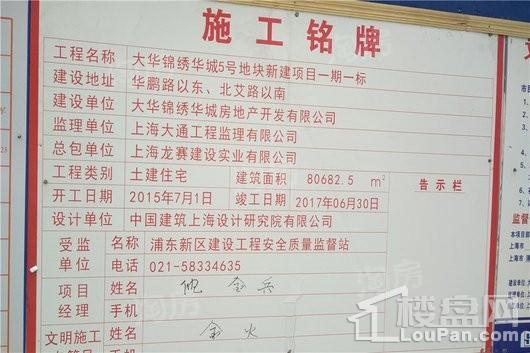 施工铭牌
工程名称 大华锦绣华城5号地块新建项目一期一标
建设地址 华鹏路以东、北艾路以南
建设单位 大华锦绣华城房地产开发有限公司
监理单位 上海大通工程监理有限公司
总包单位 上海龙赛建设实业有限公司
工程类别 土建住宅 建筑面积 80682.5 m²
告示栏
开工日期 2015年7月1日 竣工日期 2017年06月30日
设计单位 中国建筑上海设计研究院有限公司
受监单位 名称 浦东新区建设工程安全质量监督站
电话 021-58334635
项目经理 姓名
手机
文明施工 姓名 金火
手机
楼盘网
LouPan.com